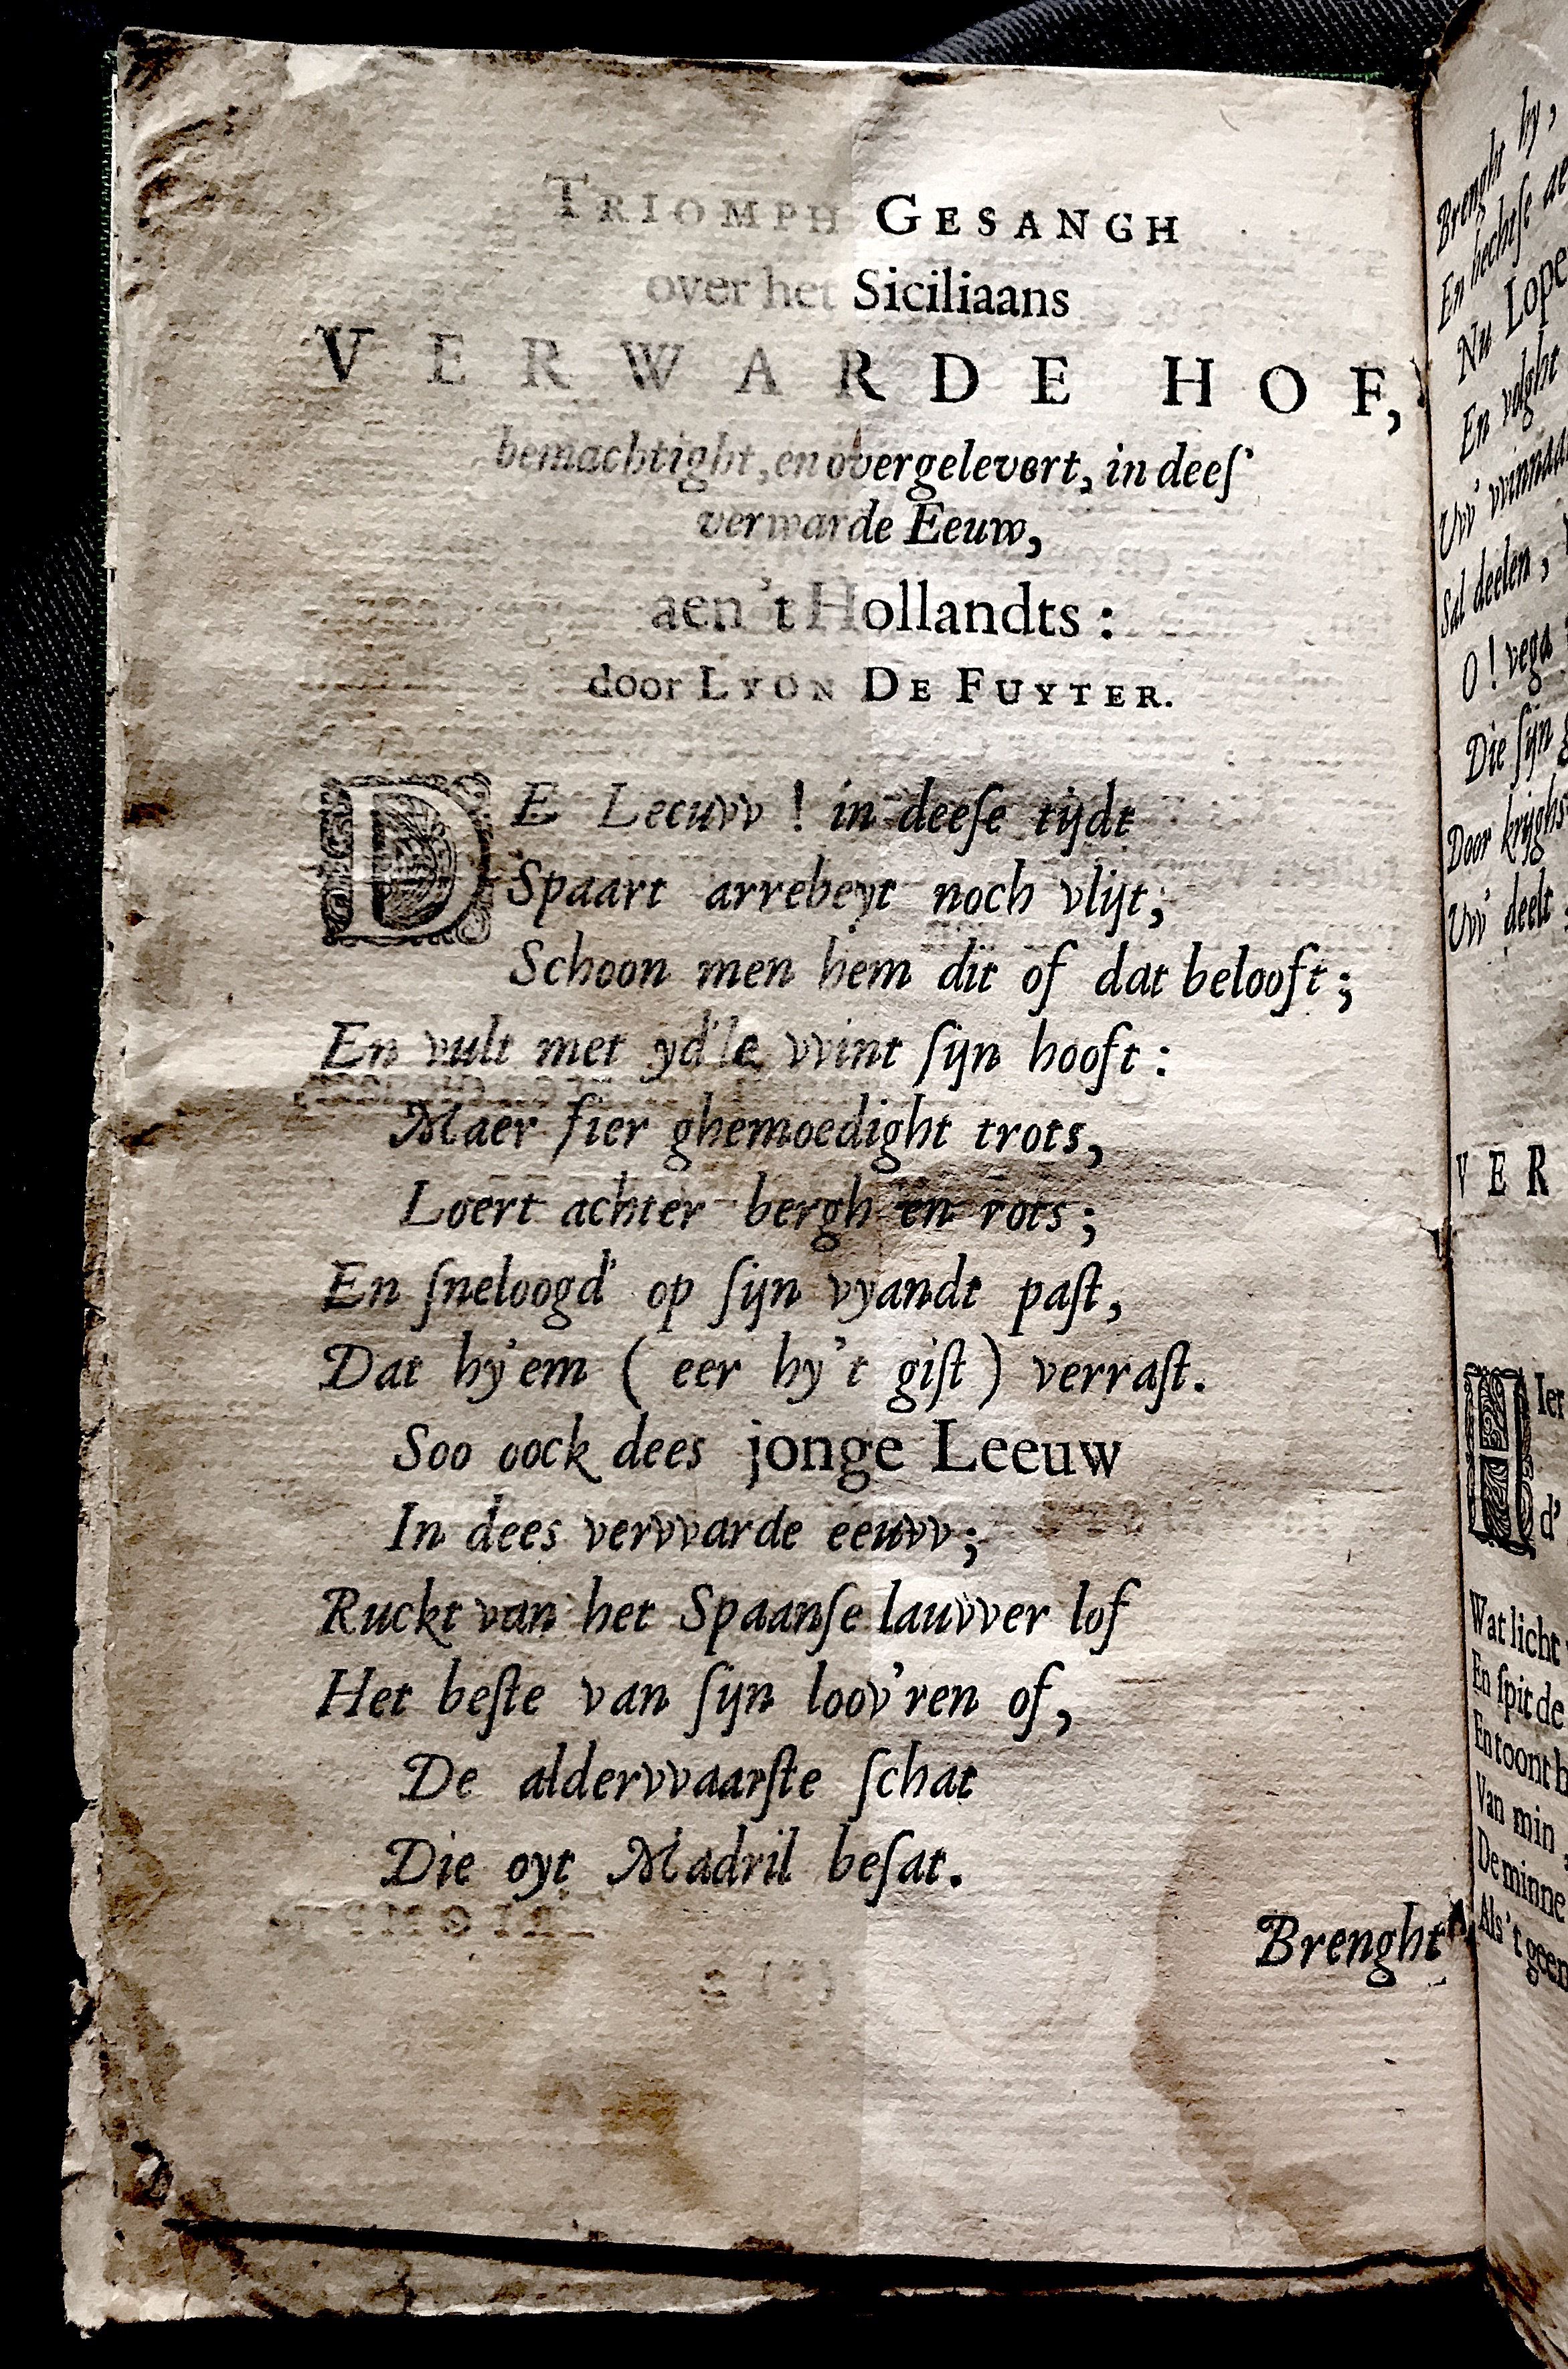 TRIOMPH GESANGH
over het Siciliaans
VERWARDE HOF,
bemachtight, en overgelevert, in deeſ'
verwarde Eeuw,
aen 't Hollandts:
door LYON DE FUYTER.
DE Leeuvv! in deeſe tijdt
Spaart arrebeyt noch vlijt;
Schoon men hem dit of dat belooft;
En vult met yd'le vvint ſijn hooft:
Maer fier ghemoedight trots,
Loert achter bergh en rots;
En ſneloogd' op ſijn vyandt paſt,
Dat hy'em (eer hy't giſt) verraſt.
Soo oock dees jonge Leeuw
In dees vervvarde eeuvv;
Ruckt van het Spaanſe lauvver lof
Het beſte van ſijn loov'ren of,
De aldervvaarſte ſchat
Die oyt Madril beſat.
Brenght
Brenght hy,
En hechtſe
Nu Lope
En volght
Uvv'
Sal deelen,
O! vega
Die ſijn
Door
Uvv' deelt
VER
HIer
d'
Wat licht
En ſpit de
En toont
Van min,
De minne
Als 't geen